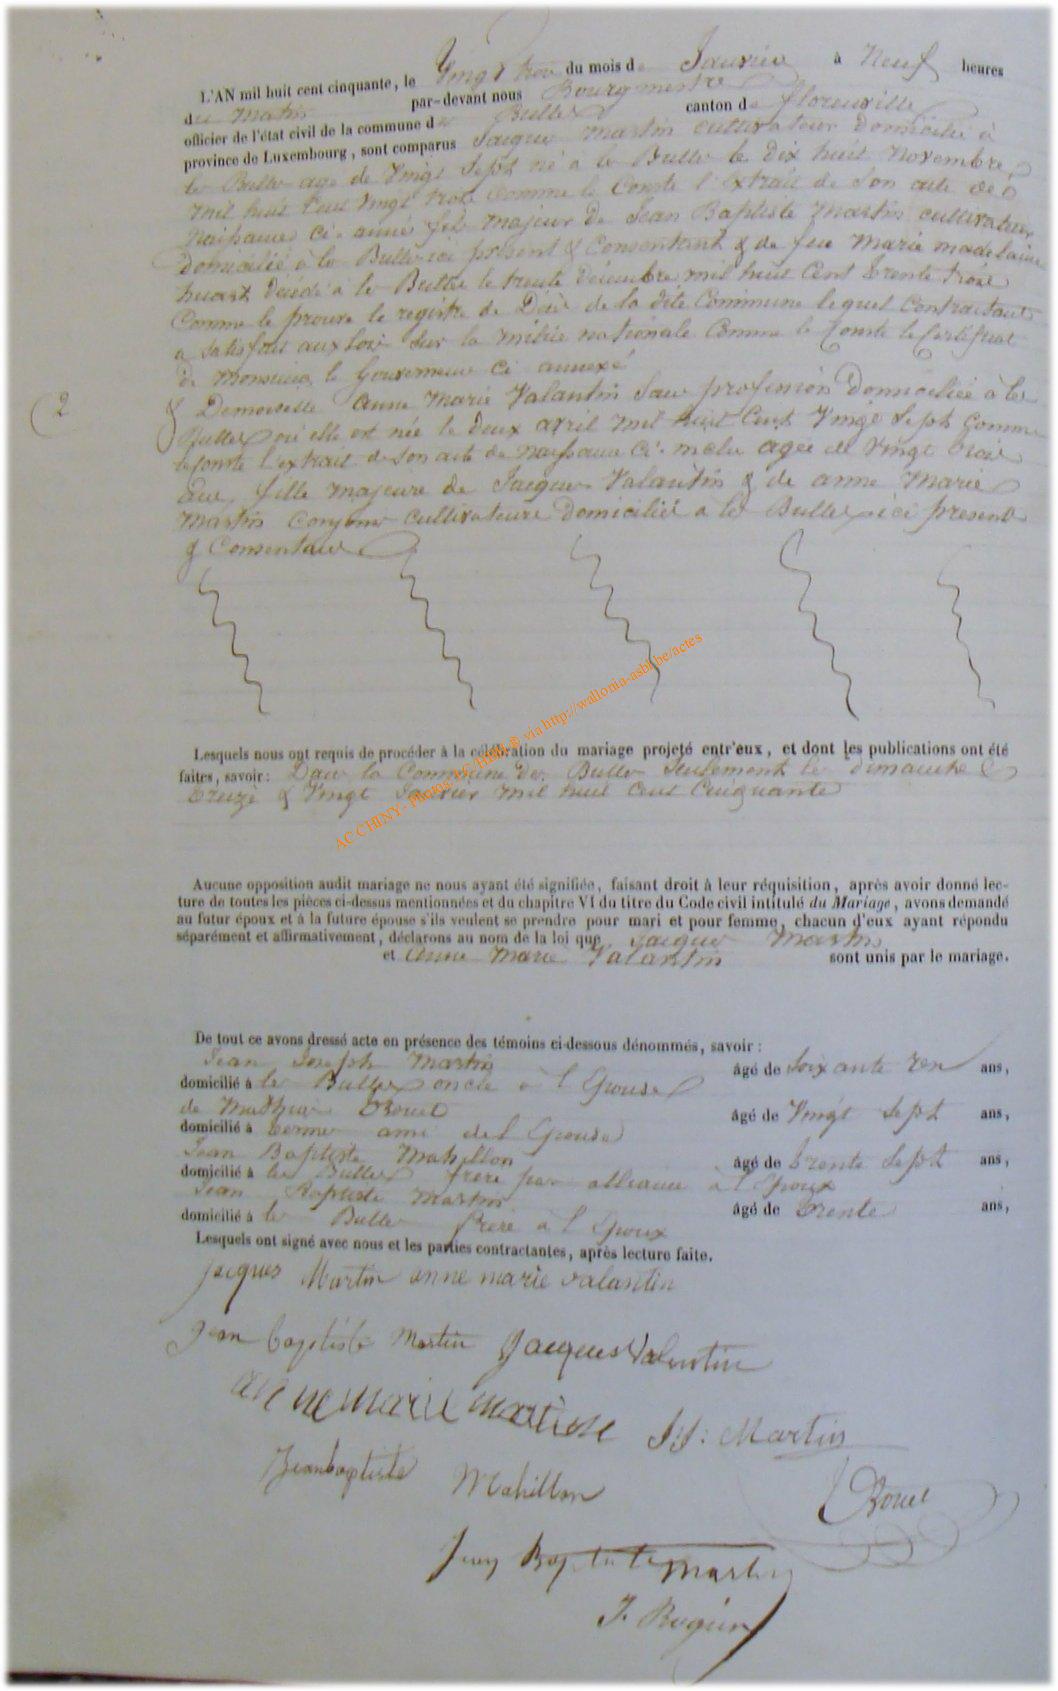 L'AN mil huit cent cinquante, le Vingt trois du mois de Janvier à Neuf heures
du Matin par-devant nous Bourgmestre
officier de l'état civil de la commune de Bulles canton de florenville
province de Luxembourg, sont comparus Jacques Martin cultivateur domicilié à
les Bulles agé de Vingt Sept né a les Bulles le dix huit Novembre
mil huit Cent Vingt trois Comme le Conste l'Extrait de Son acte de
Naissance Ci-annéé fils majeur de Jean Baptiste Martin cultivateur
domicilié à les Bulles ici présent & Consentant & de feu Marie madelaine
huart décédé à les Bulles le trente décembre mil huit Cent trente trois
Comme le prouve le registre de Décès de la dite Commune lequel Contractant
a satisfait aux Lois Sur la milice nationale Comme le Conste le Certificat
de Monsieur le Gouverneur Ci annexé
2
& Demoiselle Anne Marie Valantin Sans profession domiciliée à les
Bulles où elle est née le deux avril mil huit Cent Vingt Sept Comme
le Conste l'extrait de Son acte de Naissance Ci-inclu agée de Vingt trois
Ans, fille majeure de Jacques Valantin & de anne Marie
Martin Conjoins cultivateurs domicilié a les Bulles ici présent
& Consentans
Lesquels nous ont requis de procéder à la célébration du mariage projeté entr'eux, et dont les publications ont été
faites, savoir: Dans la Commune des Bulles Seulement les dimanche
treize & Vingt Janvier mil huit Cent Cinquante
Aucune opposition audit mariage ne nous ayant été signifiée, faisant droit à leur réquisition, après avoir donné lec-
ture de toutes les pièces ci-dessus mentionnées et du chapitre VI du titre du Code civil intitulé du Mariage, avons demandé
au futur époux et à la future épouse s'ils veulent se prendre pour mari et pour femme, chacun d'eux ayant répondu
séparément et affirmativement, déclarons au nom de la loi que Jacques Martin
et Anne Marie Valantin sont unis par le mariage.
De tout ce avons dressé acte en présence des témoins ci-dessous dénommés, savoir:
Jean Joseph Martin âgé de Soixante ans,
domicilié à les Bulles oncle à l'Epouse
de Mathieu âgé de Vingt Sept ans,
domicilié à termes ami de l'Epouse
Jean Baptiste Mahillon âgé de trente Sept ans,
domicilié à les Bulles frère par alliance à l'Epoux
Jean Baptiste Martin âgé de trente ans,
domicilié à les Bulles frère à l'Epoux
Lesquels ont signé avec nous et les parties contractantes, après lecture faite.
jacques Martin anne marie valantin
jean baptiste Martin Jacques Valentin
anne marie martin J J: Martin
Jeanbaptiste Mahillon
Jean Baptiste Martin
AC CHINY - Photos © via http://wallonia-asbl.be/actes